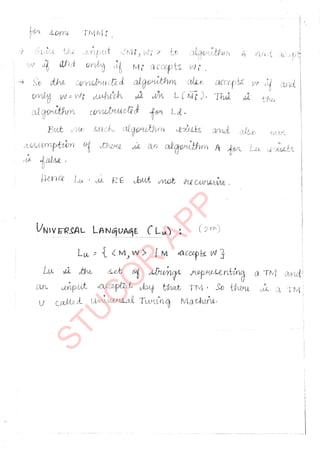 for some TMMi.
→ Give the input <Mi, Wi> to algorithm A and accept
w if and only if Mi accepts wi.
→ So the constructed algorithm also accepts w if and
only w = wi which is in L(Mi). This is the
algorithm constructed for Ld.
But no such algorithm exists and also our
assumption of there is an algorithm A for Lu exists
is false.
Hence Lu is RE but not recursive.
UNIVERSAL LANGUAGE (Lu) :
Lu = { <M, w> | M accepts w }
Lu is the set of strings representing a TM and
an input accepted by that TM. So there is a TM
U called Universal Turing Machine.
STUCOR APP